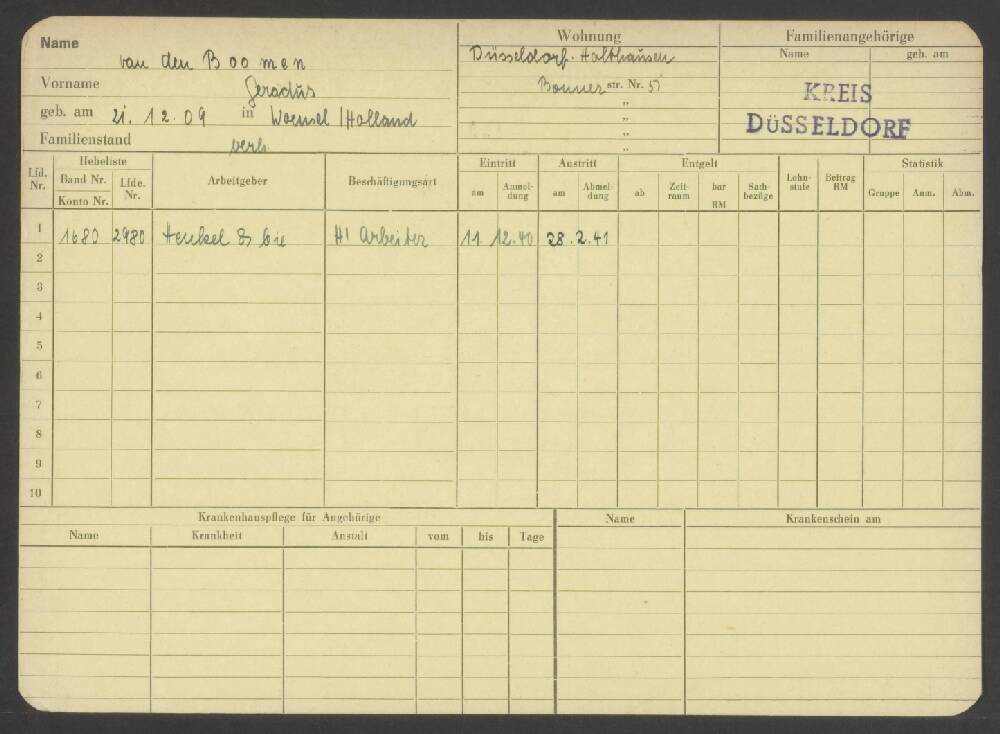 Name van den Boomen
Vorname Geradus
geb. am 21. 12. 09 in Woensel / Holland
Familienstand verh
Wohnung
Düsseldorf-Holthausen
Bonner str. Nr. 51
„
„
„
„
Familienangehörige
Name geb. am
KREIS
DÜSSELDORF
Lfd. Nr. Hebeliste Band Nr. Konto Nr. Lfde. Nr. Arbeitgeber Beschäftigungsart Eintritt am Anmeldung Austritt am Abmeldung Entgelt ab Zeitraum bar RM Sachbezüge Lohnstufe Beitrag RM Statistik Gruppe Anm. Abm.
1 1680 2980 Henkel & Cie Hi Arbeiter 11. 12. 40 28. 2. 41
2
3
4
5
6
7
8
9
10
Krankenhauspflege für Angehörige
Name Krankheit Anstalt vom bis Tage
Name Krankenschein am